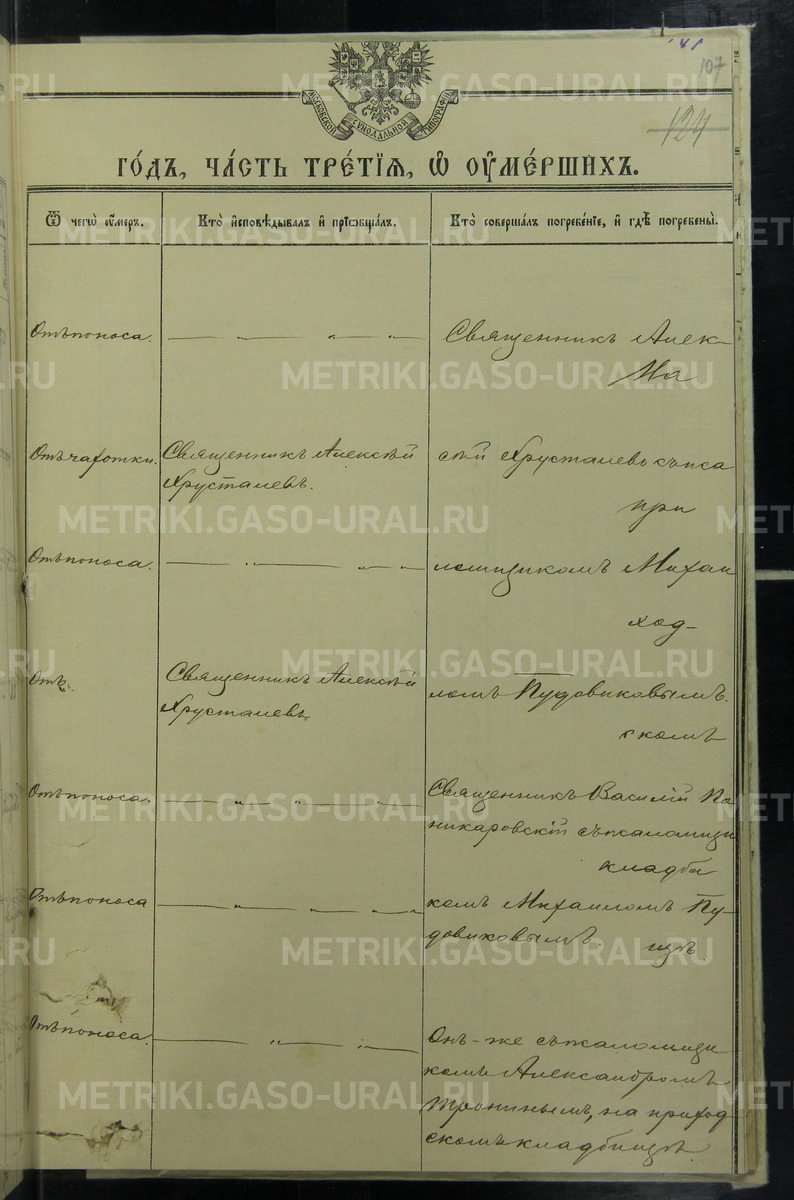 107
124
МОСКОВСКОЙ СѴНОДАЛЬНОЙ ТИПОГРАФІИ
ГО́ДЪ, ЧА́СТЬ ТРЕ́ТІЯ, Ѡ ОУ҆МЕ́РШИХЪ.
Ѿ чегѡ̀ оу҆́меръ.
Кто̀ и҆сповѣ́дывалъ и҆ прїѡбща́лъ.
Кто̀ соверша́лъ погребе́нїе, и҆ гдѣ̀ погребены̀.
Отъ поноса.
Священникъ Алек-
На
Отъ чахотки.
Священникъ Алексѣй
Хрусталевъ.
сѣй Хрусталевъ съ пса
при
Отъ поноса.
ломщикомъ Михаи
ход-
Отъ.
Священникъ Алексѣй
Хрусталевъ
ломъ Пудовиковымъ.
скомъ
Отъ поноса.
Священникъ Василій По
никаровскій съ псаломщи
кладби
Отъ поноса
комъ Михаиломъ Пу-
довиковымъ.
щѣ.
Отъ поноса.
Онъ-же съ псаломщи
комъ Александромъ
Трониным, на приход
скомъ кладбищѣ.
METRIKI.GASO-URAL.RU